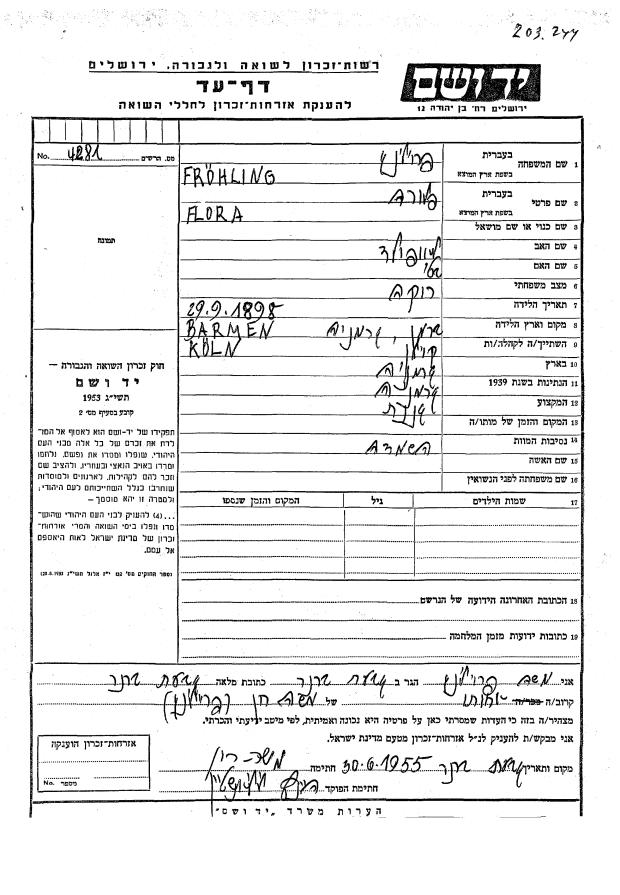 203.277
רשות־זכרון לשואה ולגבורה, ירושלים
דף־עד
להענקת אזרחות־זכרון לחללי השואה
יד ושם
ירושלים רח׳ בן יהודה 12
No. 4281 מס. הרשום
תמונה
1 שם המשפחה בעברית
בשפת ארץ המוצא FRÖHLING
2 שם פרטי בעברית פלורה
בשפת ארץ המוצא FLORA
3 שם כנוי או שם מושאל
4 שם האב
5 שם האם
6 מצב משפחתי רוקה
7 תאריך הלידה 29.9.1898
8 מקום וארץ הלידה ברמן, גרמניה BARMEN
9 השתייך/ה לקהלה/ות קלן KÖLN
10 בארץ גרמניה
11 הנתינות בשנת 1939 גרמניה
12 המקצוע
13 המקום והזמן של מותו/ה
14 נסיבות המוות השמדה
15 שם האשה
16 שם משפחתה לפני הנשואין
17 שמות הילדים גיל המקום והזמן שנספו
18 הכתובת האחרונה הידועה של הנרשם
19 כתובות ידועות מזמן המלחמה
חוק זכרון השואה והגבורה —
יד ושם
תשי״ג 1953
קובע בסעיף מס׳ 2
תפקידו של יד־ושם הוא לאסוף אל המו־
לדת את זכרם של כל אלה מבני העם
היהודי, שנפלו ומסרו את נפשם, נלחמו
ומרדו באויב הנאצי ובעוזריו, ולהציב שם
וזכר להם לקהילות, לארגונים ולמוסדות
שנחרבו בגלל השתייכותם לעם היהודי;
ולמטרה זו יהא מוסמך —
...(4) להעניק לבני העם היהודי שהוש־
מדו ונפלו בימי השואה והמרי אזרחות־
זכרון של מדינת ישראל לאות היאספם
אל עמם.
(ספר החוקים מס׳ 132 י״ז אלול תשי״ג 28.8.1953)
אני משה הגר ב גבעת ברנר כתובת מלאה גבעת ברנר
קרוב/ה של משה רון
מצהיר/ה בזה כי העדות שמסרתי כאן על פרטיה היא נכונה ואמיתית, לפי מיטב ידיעתי והכרתי.
אני מבקש/ת להעניק לנ״ל אזרחות־זכרון מטעם מדינת ישראל.
אזרחות־זכרון הוענקה
No. מספר
מקום ותאריך גבעת ברנר 30.6.1955 חתימה משה רון
חתימת הפוקד
הערות משרד „יד ושם״